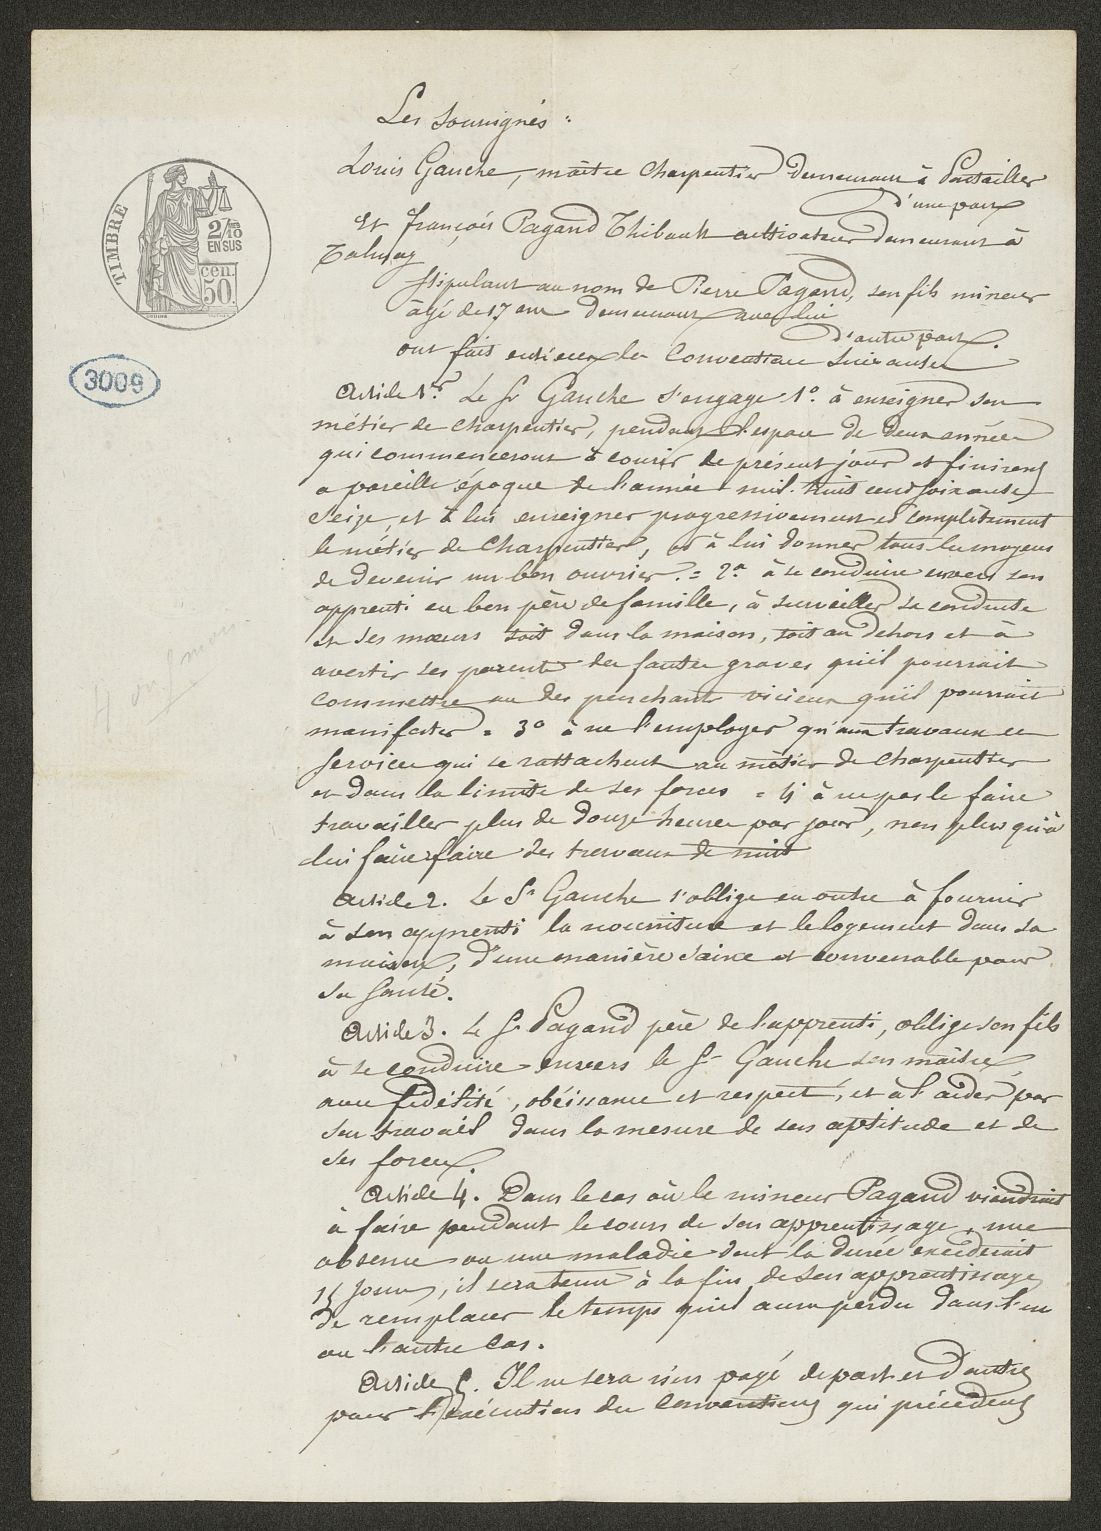 Les soussignés :
Louis Gauche, maître charpentier demeurant à Pontailler
d'une part
Et françois Pagand Thibault cultivateur demeurant à
Talmay
stipulant au nom de Pierre Pagand, son fils mineur
âgé de 17 ans demeurant avec lui
d'autre part.
ont fait entre eux les conventions suivantes
TIMBRE
2/10 EN SUS
cen. 50
3009
Article 1er. Le Sr Gauche s'engage 1º. à enseigner son
métier de charpentier, pendant l'espace de deux années
qui commenceront à courir de présent jour et finiront
a pareille époque de l'année mil. huit cent soixante
Seize, et à lui enseigner progressivement et complètement
le métier de charpentier, et à lui donner tous les moyens
de devenir un bon ouvrier. = 2º à se conduire envers son
apprenti en bon père de famille, à surveiller sa conduite
et ses mœurs soit dans la maison, soit au dehors et à
avertir ses parents des fautes graves qu'il pourrait
commettre ou des penchants vicieux qu'il pourrait
manifester = 3º à ne l'employer qu'aux travaux et
services qui se rattachent au métier de charpentier
et dans la limite de ses forces = 4º à ne pas le faire
travailler plus de douze heures par jour, non plus qu'à
lui faire faire des travaux de nuit
Article 2. Le Sr Gauche s'oblige en outre à fournir
à son apprenti la nourriture et le logement dans sa
maison, d'une manière saine et convenable pour
sa santé.
Article 3. Le Sr Pagand père de l'apprenti, oblige son fils
à se conduire envers le Sr Gauche son maître,
avec fidélité, obéissance et respect, et à l'aider par
son travail dans la mesure de son aptitude et de
ses forces.
Article 4. Dans le cas où le mineur Pagand viendrait
à faire pendant le cours de son apprentissage, une
absence ou une maladie dont la durée excéderait
15 jours, il sera tenu à la fin de son apprentissage
de remplacer le temps qu'il aura perdu dans l'un
ou l'autre cas.
Article 5. Il ne sera rien payé de part et d'autre
pour l'exécution des conventions qui précèdent